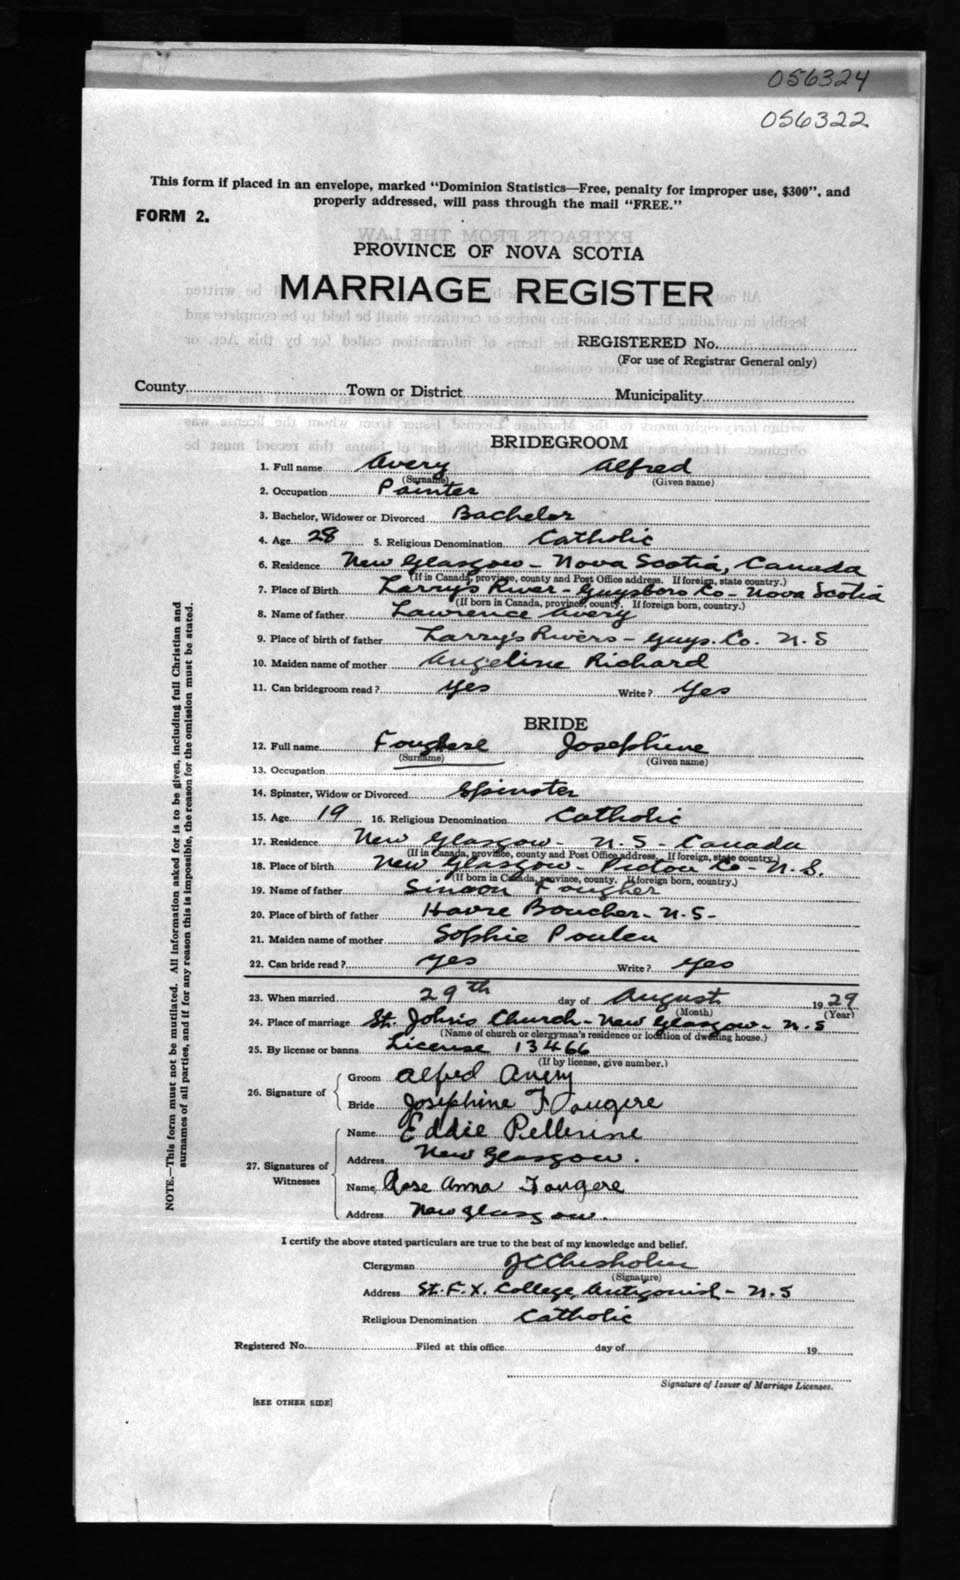 056324
056322
This form if placed in an envelope, marked "Dominion Statistics—Free, penalty for improper use, $300", and
properly addressed, will pass through the mail "FREE."
FORM 2.
PROVINCE OF NOVA SCOTIA
MARRIAGE REGISTER
REGISTERED No.
(For use of Registrar General only)
County Town or District Municipality
BRIDEGROOM
1. Full name Avery Alfred
(Surname) (Given name)
2. Occupation Painter
3. Bachelor, Widower or Divorced Bachelor
4. Age 28 5. Religious Denomination Catholic
6. Residence New Glasgow - Nova Scotia, Canada
(If in Canada, province, county and Post Office address. If foreign, state country.)
7. Place of Birth Larrys River - Guysboro Co - Nova Scotia
(If born in Canada, province, county. If foreign born, country.)
8. Name of father Lawrence Avery
9. Place of birth of father Larry's Rivers - Guys. Co. N.S
10. Maiden name of mother Angeline Richard
11. Can bridegroom read? yes Write? yes
BRIDE
12. Full name Foughere Josephine
(Surname) (Given name)
13. Occupation
14. Spinster, Widow or Divorced Spinster
15. Age 19 16. Religious Denomination Catholic
17. Residence New Glasgow - N.S - Canada
(If in Canada, province, county and Post Office address. If foreign, state country.)
18. Place of birth New Glasgow - Pictou Co - N.S.
(If born in Canada, province, county. If foreign born, country.)
19. Name of father Simon Fougher
20. Place of birth of father Havre Boucher - N.S -
21. Maiden name of mother Sophie
22. Can bride read? yes Write? yes
23. When married 29th day of August 1929
(Month) (Year)
24. Place of marriage St. John's Church - New Glasgow - N.S
(Name of church or clergyman's residence or location of dwelling house.)
25. By license or banns License 13466
(If by license, give number.)
26. Signature of
Groom Alfred Avery
Bride Josephine Fougere
27. Signatures of Witnesses
Name Eddie Pellerine
Address New Glasgow.
Name Rose Anna Fougere
Address New Glasgow.
I certify the above stated particulars are true to the best of my knowledge and belief.
Clergyman JC Chisholm
(Signature)
Address St. F.X. College, Antigonish - N.S
Religious Denomination Catholic
Registered No. Filed at this office day of 19
Signature of Issuer of Marriage Licenses.
[SEE OTHER SIDE]
NOTE.—This form must not be mutilated. All information asked for is to be given, including full Christian and
surnames of all parties, and if for any reason this is impossible, the reason for the omission must be stated.